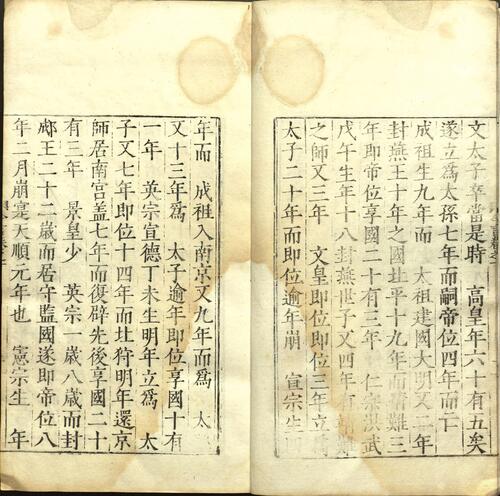 文太子卒當是時 高皇年六十有五矣
遂立爲太孫七年而嗣帝位四年而下
成祖生九年而 太祖建國大明又二年
封燕王十年之國北平十九年而靖難三
年即帝位享國二十有三年 仁宗洪武
戊午生年十八封燕世子又四年有靖難
之師又三年 文皇即位三年立爲
太子二十年而即位逾年崩 宣宗生
年而 成祖入南京又九年而爲 太
又十三年爲 太子逾年即位享國十有
一年 英宗宣德丁未生明年立爲 太
子又七年即位十四年而北狩明年還京
師居南宫盖七年而復辟先後享國二十
有三年 景皇少 英宗一歲八歲而封
郕王二十二歲而居守監國遂即帝位八
年二月崩寔天順元年也 憲宗生 年